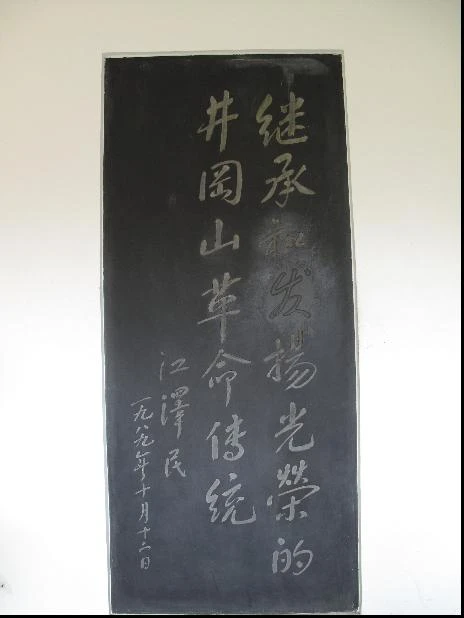 继承和发揚光榮的
井岡山革命传统
江澤民
一九八九年十月十二日